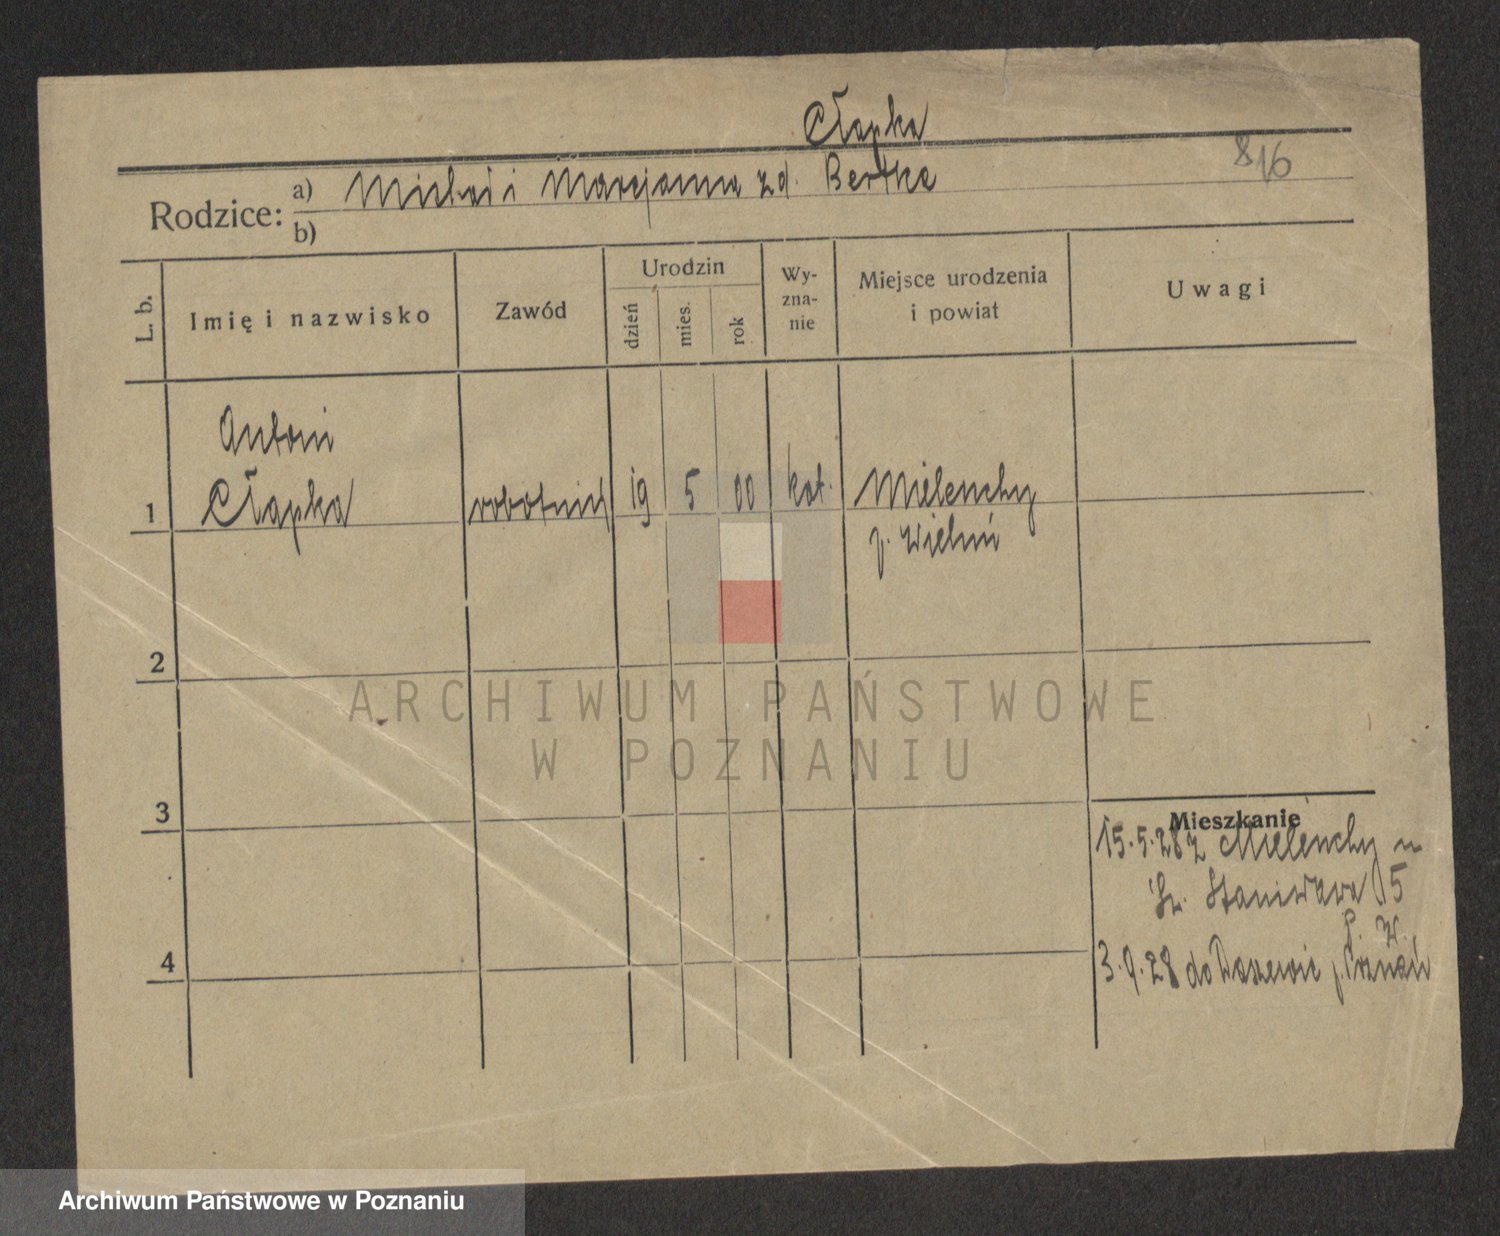 Cłapka
816
Rodzice: a) Michał i Marjanna zd. Bertke
b)
L. b. Imię i nazwisko Zawód Urodzin dzień mies. rok Wy-zna-nie Miejsce urodzenia i powiat Uwagi
Antoni
1 Cłapka robotnik 19 5 00 kat. Mielenchy
p. Wieluń
2
3
Mieszkanie
15.5.28 z Mielenchy
Św. Stanisława 15
p. W.
4
3.9.28 do Daszewic p. Poznań
ARCHIWUM PAŃSTWOWE
W POZNANIU
Archiwum Państwowe w Poznaniu